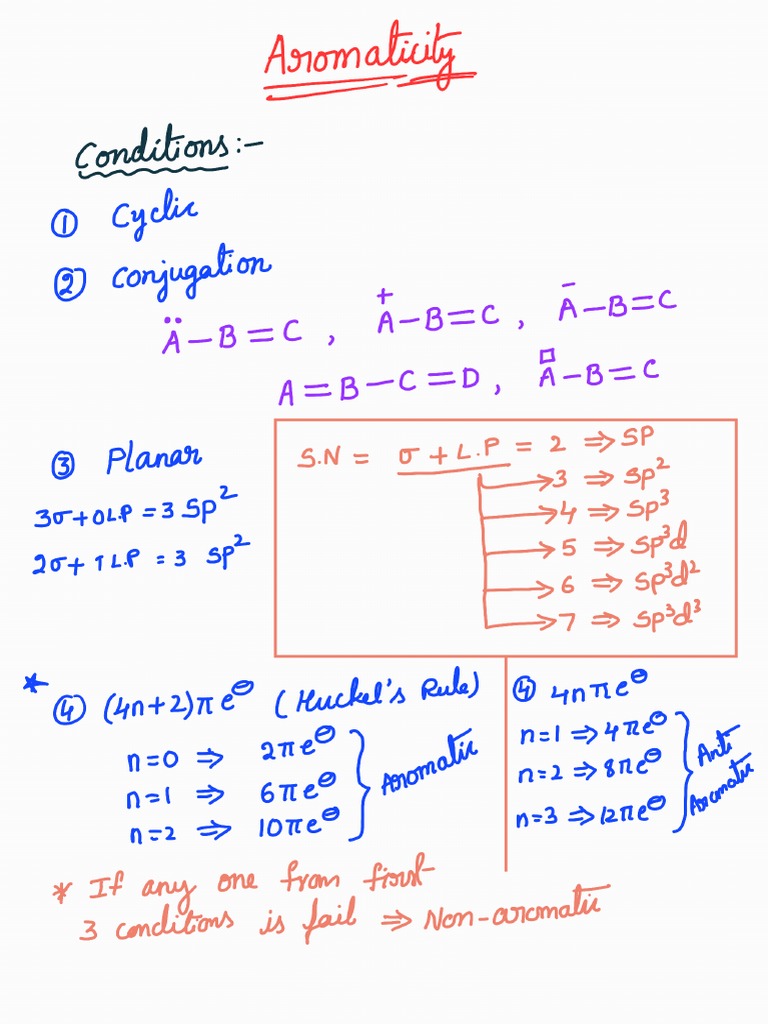 Aromaticity
Conditions:-
① Cyclic
② Conjugation
Ä–B=C , A⁺–B=C , A⁻–B=C
A=B–C=D , A□–B=C
③ Planar
3σ+0L.P = 3 Sp²
2σ+1L.P = 3 Sp²
S.N = σ+L.P = 2 ⇒ SP
→3 ⇒ Sp²
→4 ⇒ Sp³
→5 ⇒ Sp³d
→6 ⇒ Sp³d²
→7 ⇒ Sp³d³
★ ④ (4n+2)πe⊖ (Huckel's Rule)
n=0 ⇒ 2πe⊖
n=1 ⇒ 6πe⊖
n=2 ⇒ 10πe⊖
Aromatic
④ 4nπe⊖
n=1 ⇒ 4πe⊖
n=2 ⇒ 8πe⊖
n=3 ⇒ 12πe⊖
Anti
Aromatic
* If any one from first
3 conditions is fail ⇒ Non-aromatic